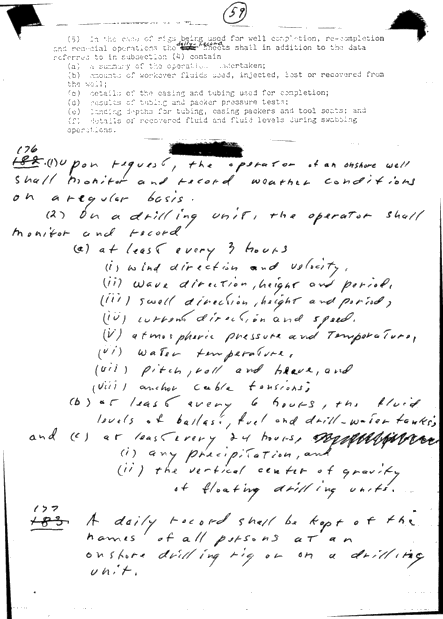 59
(5) In the case of rigs being used for well completion, re-completion
and remedial operations the daily record sheets shall in addition to the data
referred to in subsection (4) contain
(a) a summary of the operation undertaken;
(b) amounts of workover fluids used, injected, lost or recovered from
the well;
(c) details of the casing and tubing used for completion;
(d) results of tubing and packer pressure tests;
(e) landing depths for tubing, casing packers and tool seats; and
(f) details of recovered fluid and fluid levels during swabbing
operations.
176
182. (1) Upon request, the operator of an onshore well
shall monitor and record weather conditions
on a regular basis.
(2) On a drilling unit, the operator shall
monitor and record
(a) at least every 3 hours
(i) wind direction and velocity,
(ii) wave direction, height and period,
(iii) swell direction, height and period,
(iv) current direction and speed.
(v) atmospheric pressure and Temperature,
(vi) water temperature,
(vii) pitch, roll and heave, and
(viii) anchor cable tensions;
(b) at least every 6 hours, the fluid
levels of ballast, fuel and drill-water tanks;
and (c) at least every 24 hours,
(i) any precipitation, and
(ii) the vertical center of gravity
of floating drilling units.
177
183. A daily record shall be kept of the
names of all persons at an
onshore drilling rig or on a drilling
unit.